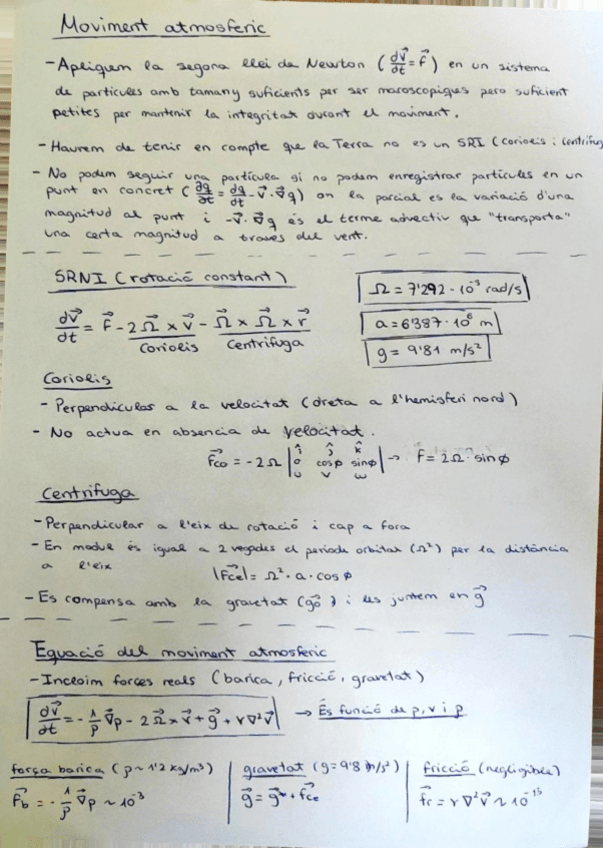 Moviment atmosferic
- Apliquem la segona llei de Newton (dv⃗/dt = f⃗) en un sistema
de particules amb tamany suficients per ser macroscopiques pero suficient
petites per mantenir la integritat durant el moviment.
- Haurem de tenir en compte que la Terra no es un SRI (Coriolis i Centrifuga
- No podem seguir una partícula si no podem enregistrar partícules en un
punt en concret (∂q/∂t = dq/dt - v⃗ · ∇⃗q) on la parcial es la variació d'una
magnitud al punt i -v⃗ · ∇⃗q és el terme advectiu que "transporta"
una certa magnitud a traves del vent.
SRNI (rotació constant)
Ω = 7'292 · 10⁻⁵ rad/s
dv⃗/dt = f⃗ - 2Ω⃗ × v⃗ - Ω⃗ × Ω⃗ × r⃗
a = 6'387 · 10⁶ m
Coriolis Centrifuga
g = 9'81 m/s²
Coriolis
- Perpendicular a la velocitat (dreta a l'hemisferi nord)
- No actua en absencia de velocitat.
f⃗co = -2Ω | î ĵ k̂ |
| 0 cosφ sinφ | → f = 2Ω · sinφ
| u v w |
Centrifuga
- Perpendicular a l'eix de rotació i cap a fora
- En modul és igual a 2 vegades el periode orbital (Ω²) per la distància
a l'eix
|f⃗ce| = Ω² · a · cosφ
- Es compensa amb la gravetat (g⃗o) i les juntem en g⃗
Equació del moviment atmosferic
- Incloim forces reals (barica, fricció, gravetat)
dv⃗/dt = -1/ρ ∇⃗p - 2Ω⃗ × v⃗ + g⃗ + ν∇²v⃗ → És funció de p, v i ρ
força barica (ρ ~ 1'2 kg/m³)
f⃗b = -1/ρ ∇⃗p ~ 10⁻³
gravetat (g = 9'8 m/s²)
g⃗ = g⃗* + f⃗ce
fricció (negligible)
f⃗r = ν∇²v⃗ ~ 10⁻¹³